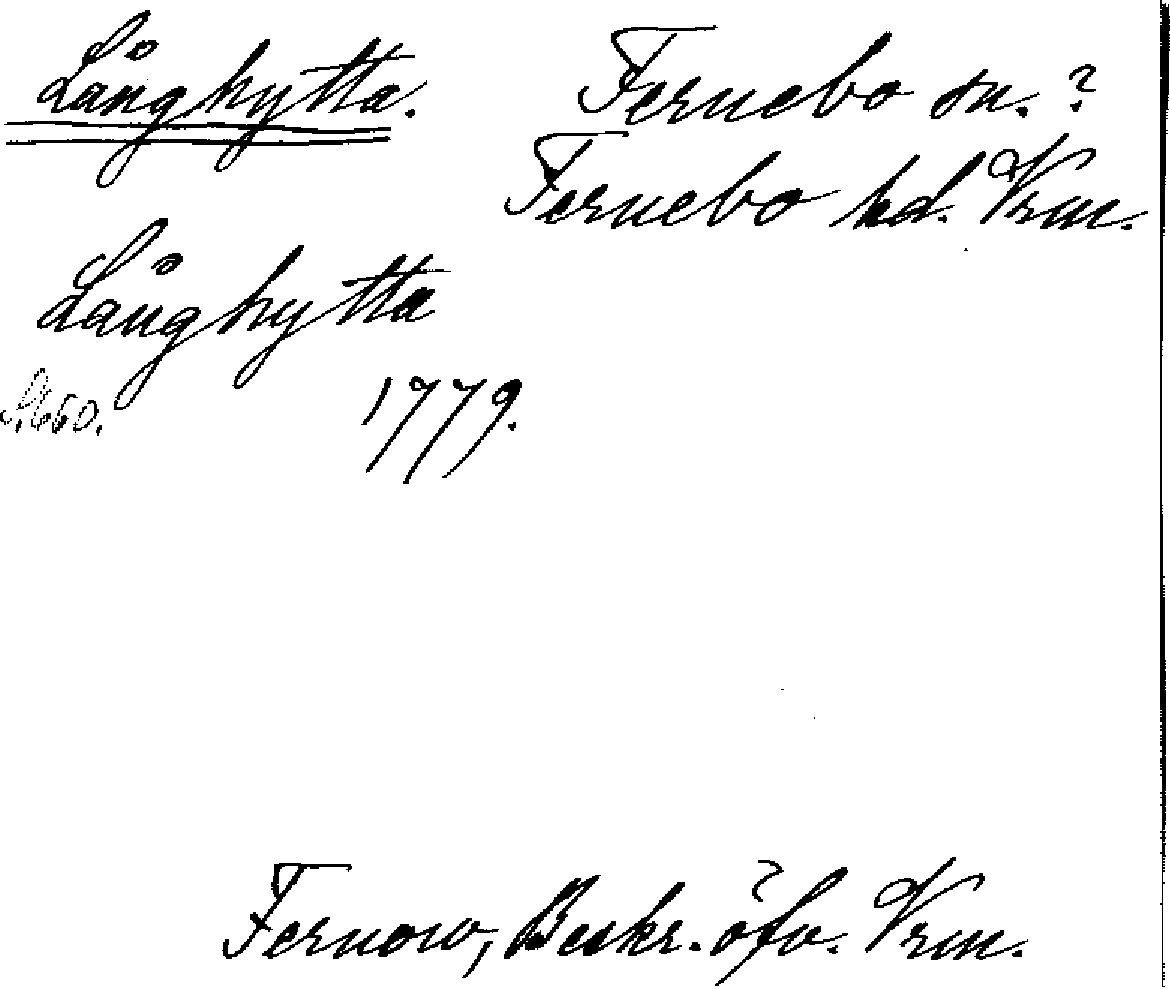 Långhytta.
Fernebo sn. ?
Fernebo hd. Vrm.
Långhytta
S. 660.
1779.
Fernow, Beskr. öfv. Vrm.